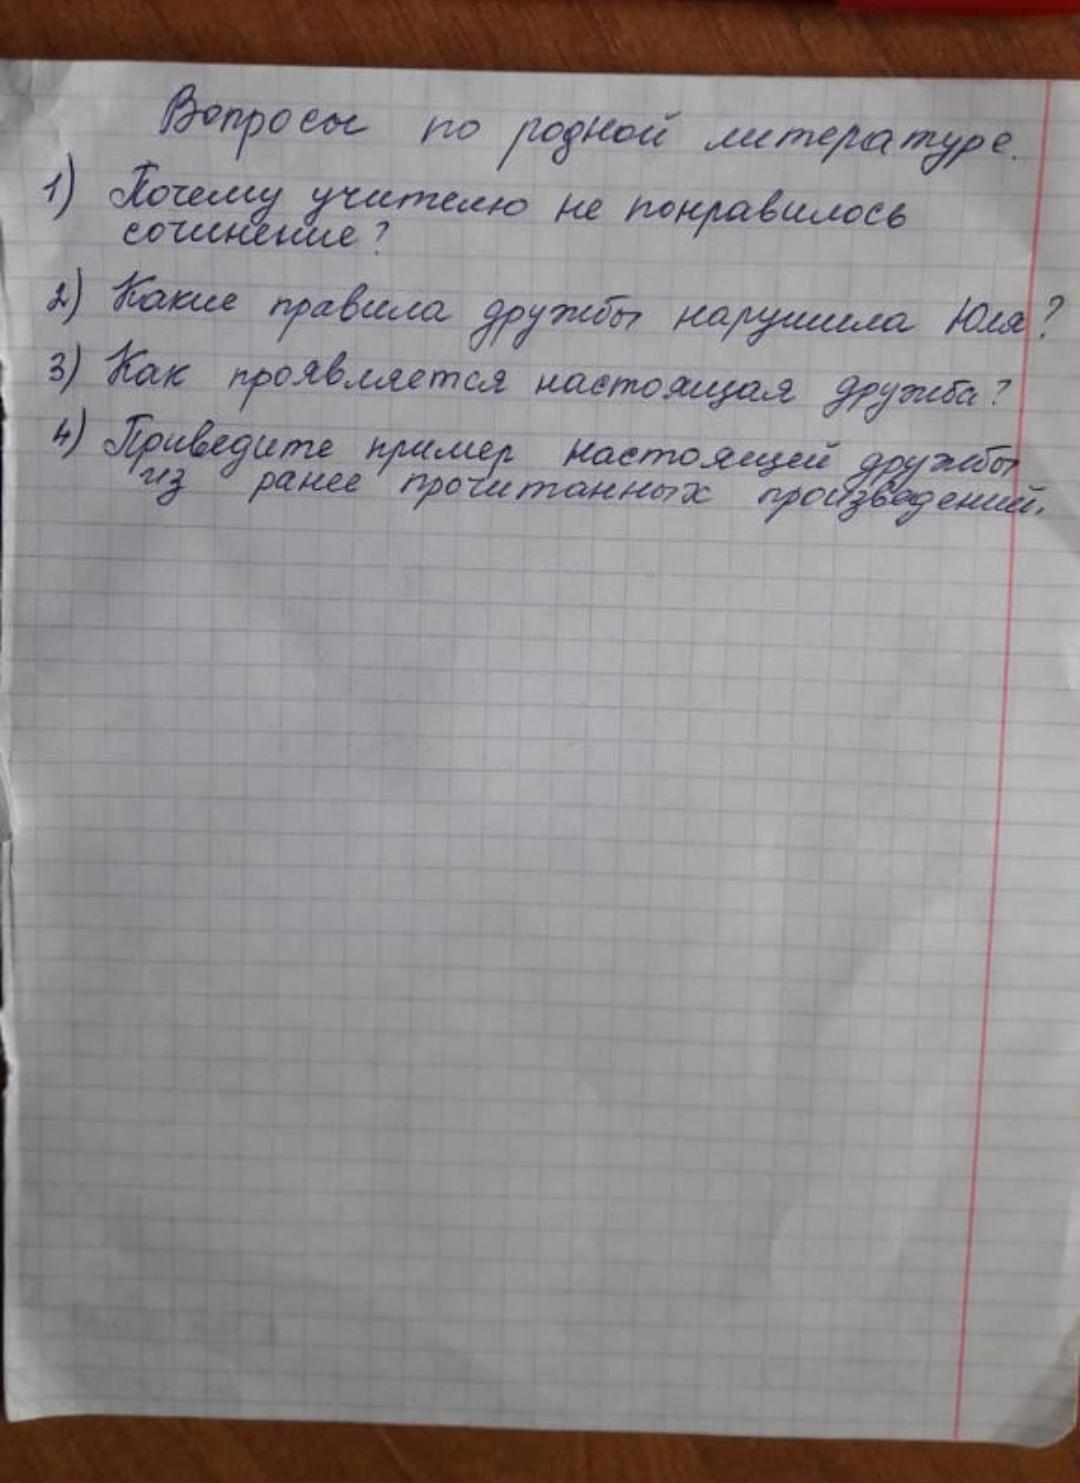 Вопросы по родной литературе.
1) Почему учителю не понравилось
сочинение?
2) Какие правила дружбы нарушила Юля?
3) Как проявляется настоящая дружба?
4) Приведите пример настоящей дружбы
из ранее прочитанных произведений.